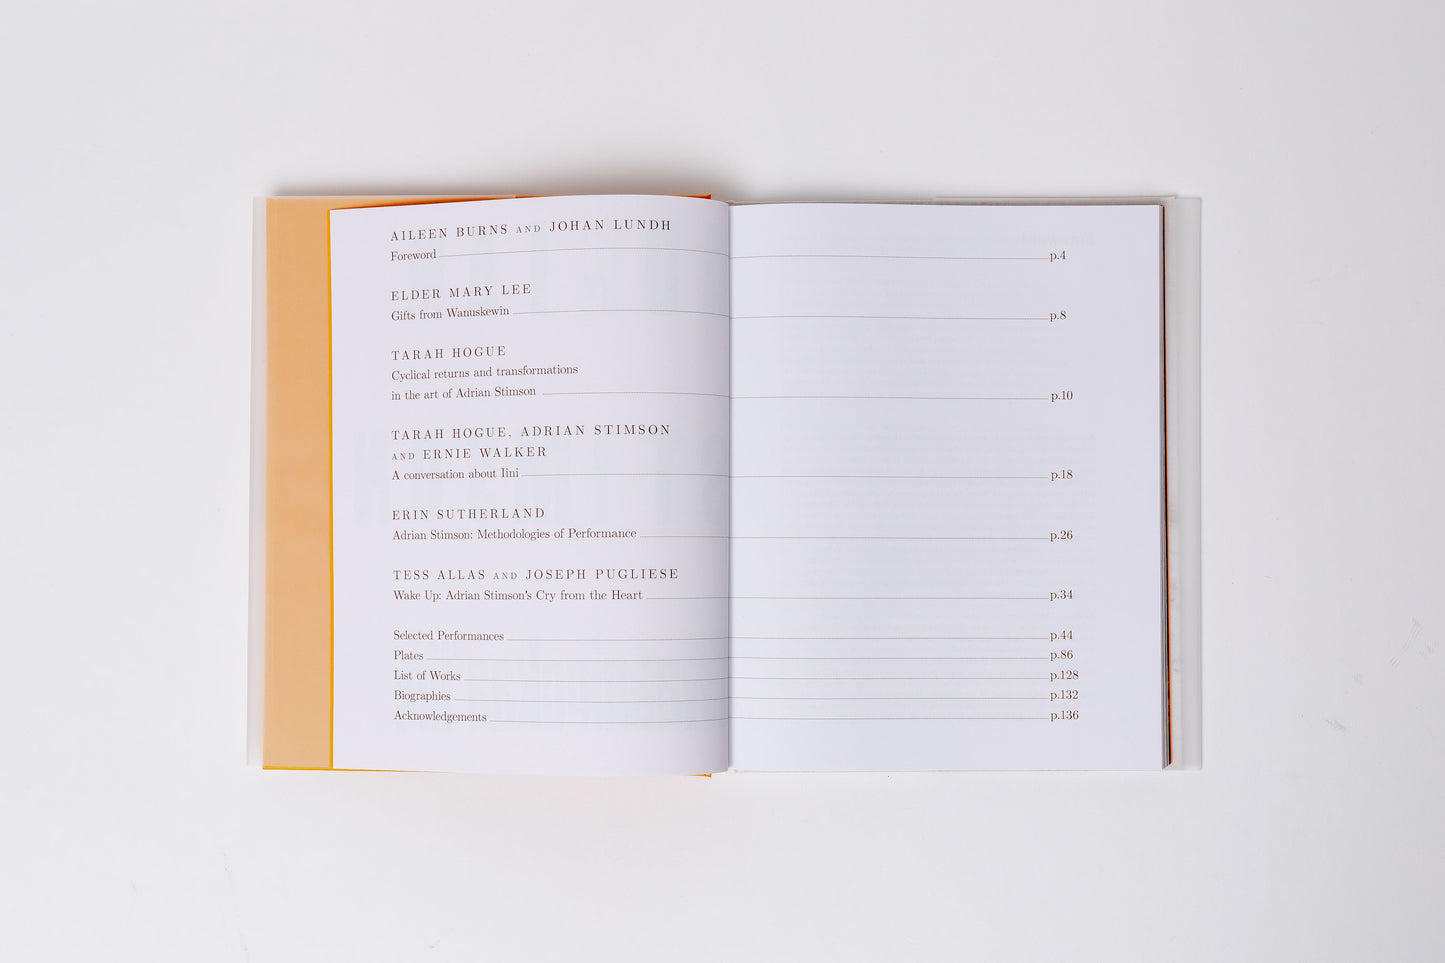 AILEEN BURNS AND JOHAN LUNDH
Foreword p.4
ELDER MARY LEE
Gifts from Wanuskewin p.8
TARAH HOGUE
Cyclical returns and transformations
in the art of Adrian Stimson p.10
TARAH HOGUE, ADRIAN STIMSON
AND ERNIE WALKER
A conversation about Iini p.18
ERIN SUTHERLAND
Adrian Stimson: Methodologies of Performance p.26
TESS ALLAS AND JOSEPH PUGLIESE
Wake Up: Adrian Stimson's Cry from the Heart p.34
Selected Performances p.44
Plates p.86
List of Works p.128
Biographies p.132
Acknowledgements p.136